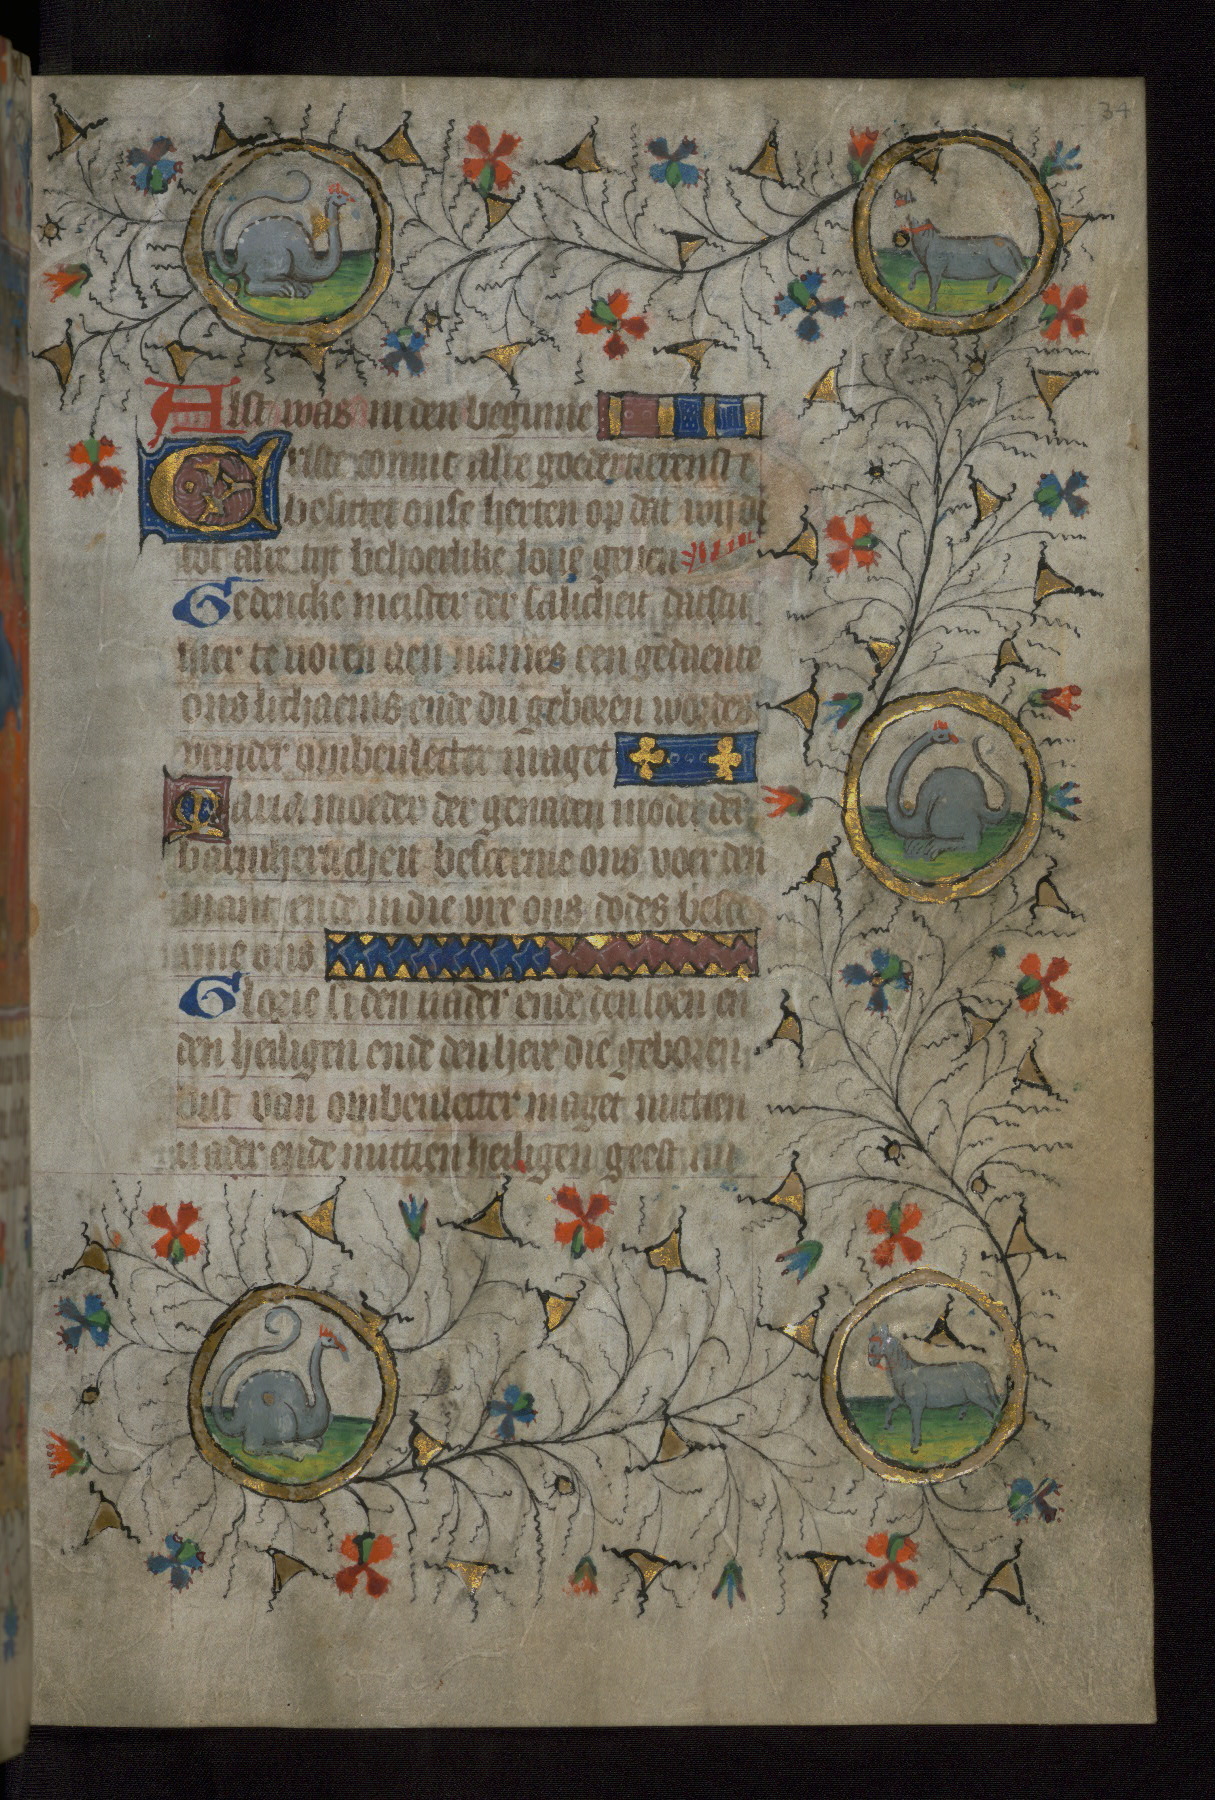 34
Alst was in den beginne
Erist comt alre goedertierenste
besittet onse herten op dat wi di
tot alre tijt behoerlike loue geuen
Gedencke meister der salicheit datstu
hier te voren aen names een gedaente
ons lichaems ende du geboren wordes
vander ombeulecter maget
Maria moeder der genaden moder der
barmherticheit bescerme ons voer den
viant ende in die vre ons dodes besce
rme ons
Glorie si den vader ende den soen en
den heiligen ende den here die geboren
bist van ombeulecter maget mitten
vader ende mitten heiligen geest in